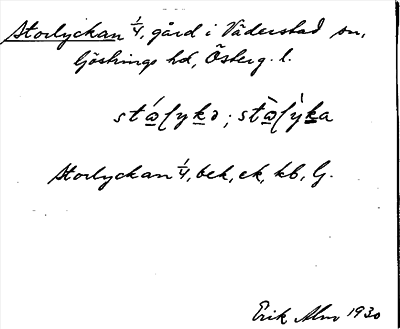 Storlyckan 1/4, gård i Väderstad sn,
Göstrings hd, Österg. l.
Storlyckan 1/4, bek, ek, kb, G.
Erik Alm 1930